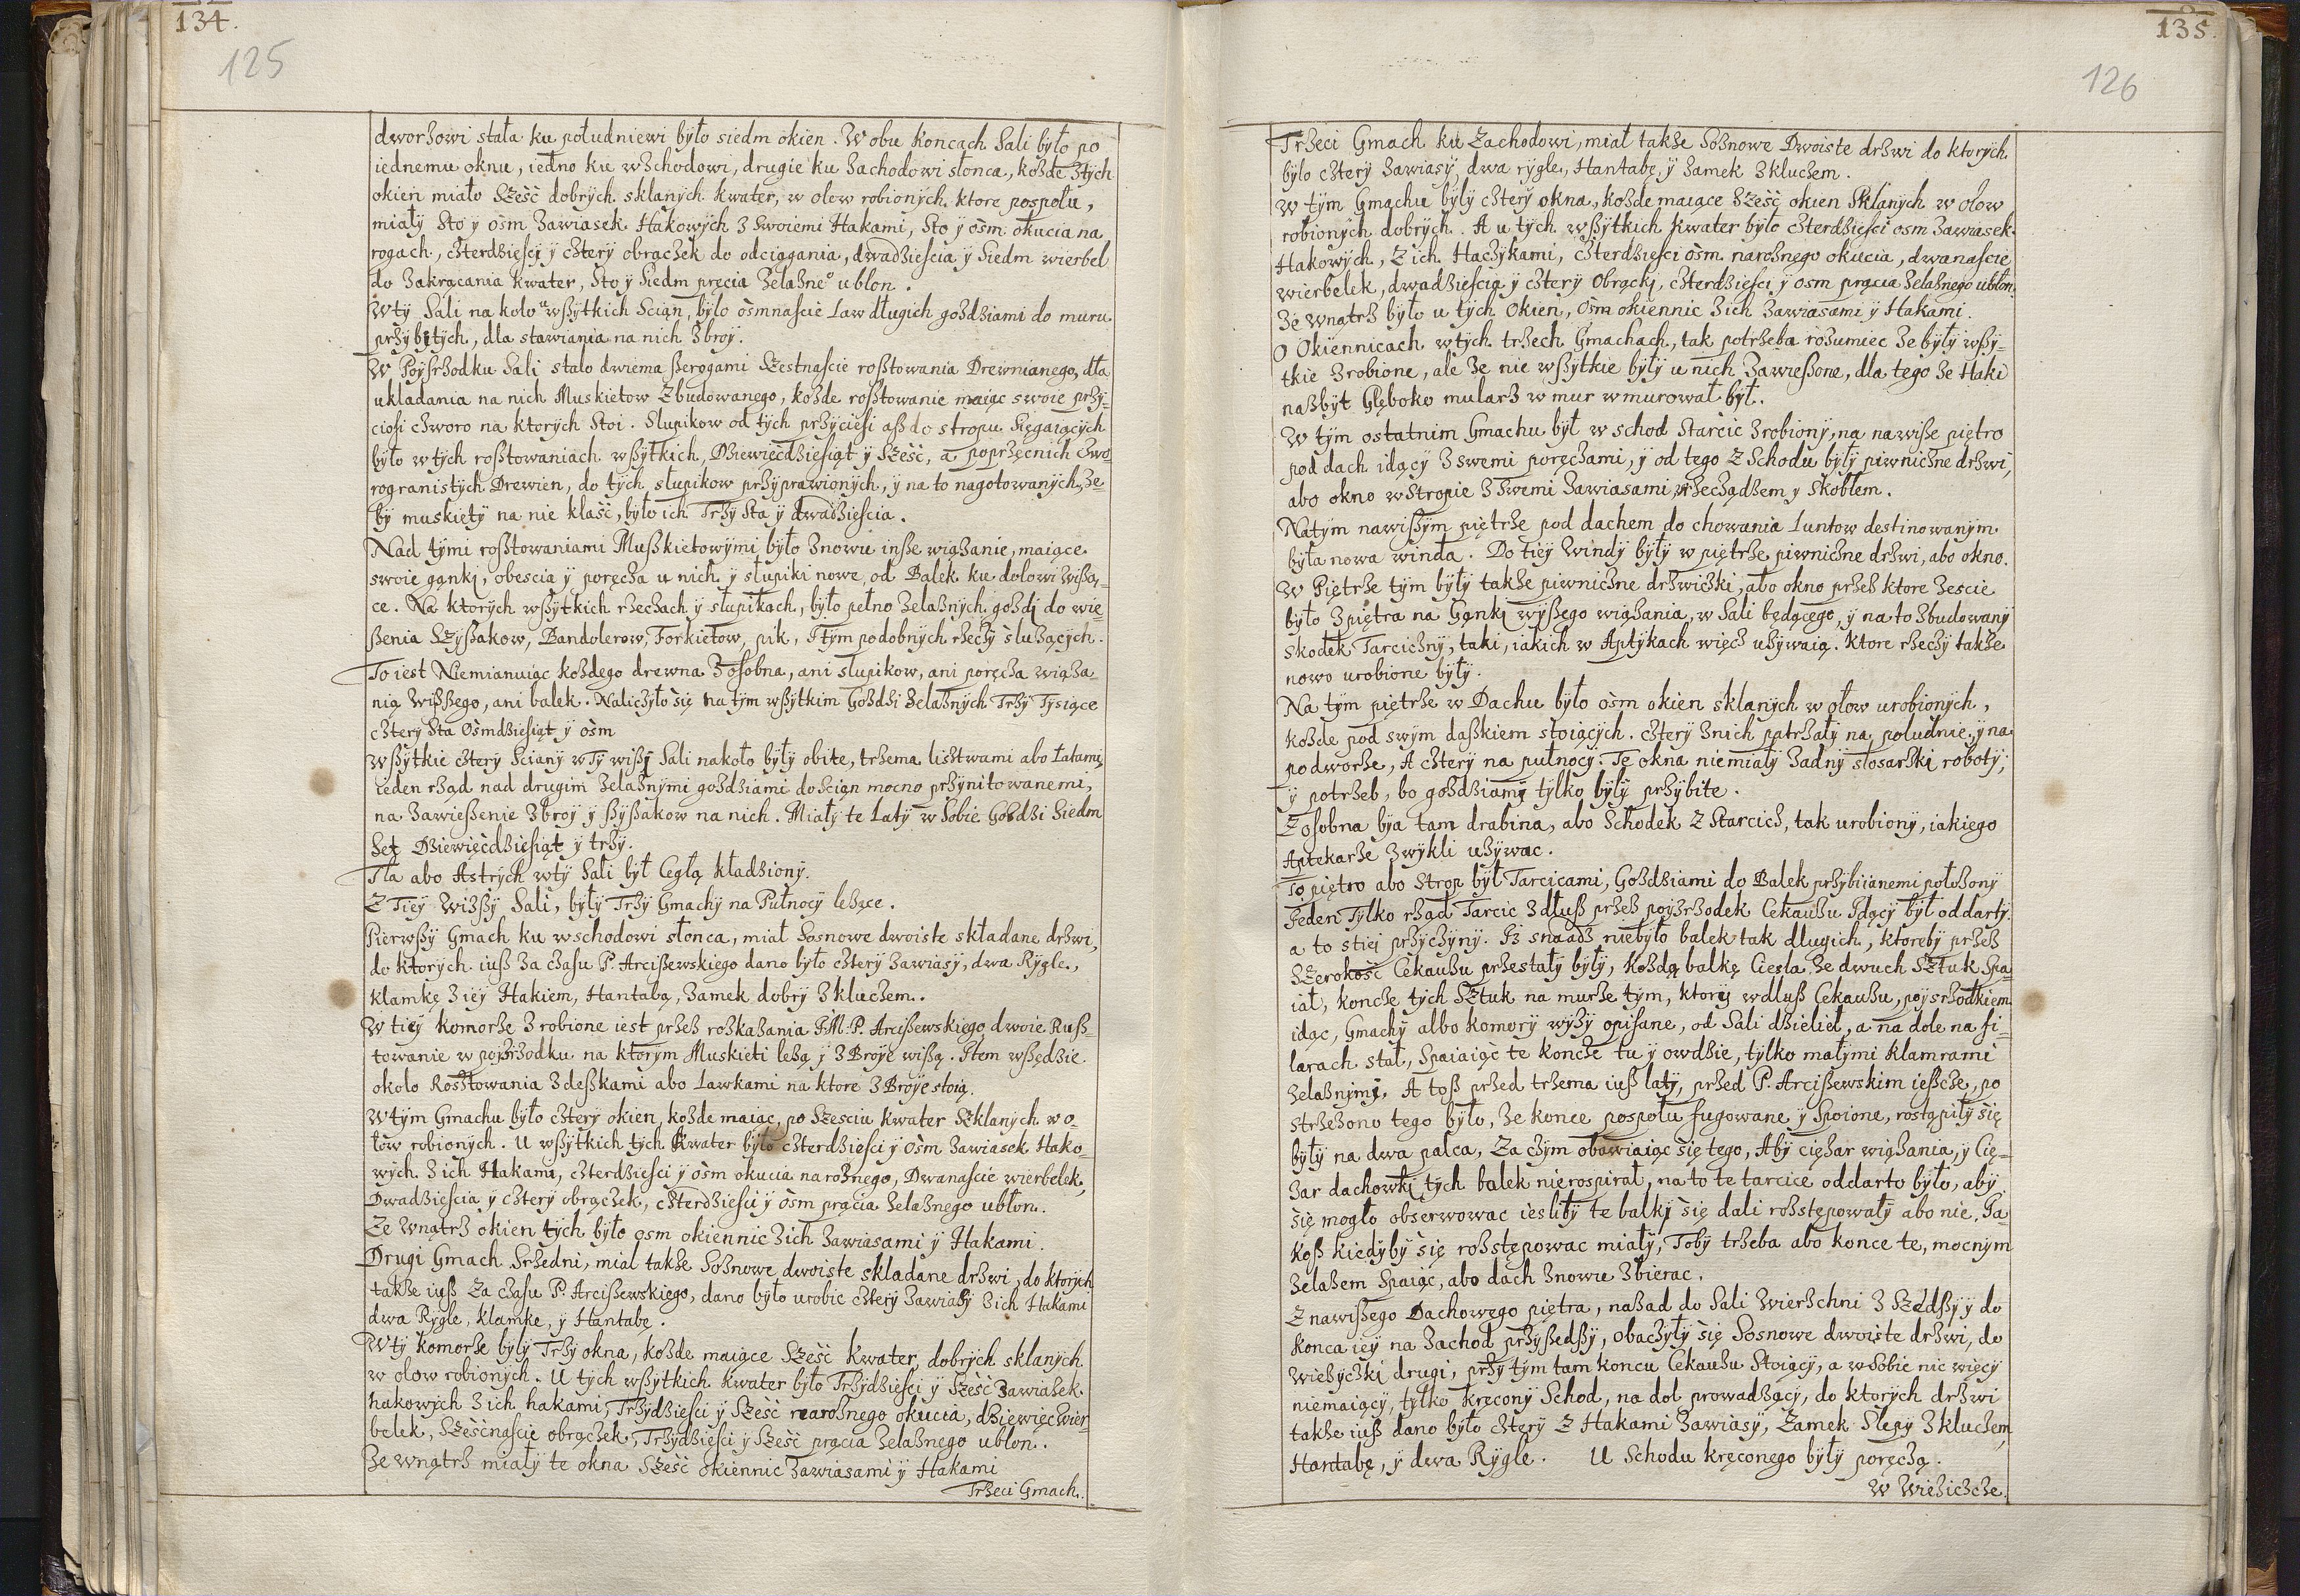 134.
125
dworzowi stała ku południewi było siedm okien. W obu koncach Sali było po
iednemu oknu, iedno ku wschodowi, drugie ku zachodowi słonca, kożde ztych
okien miało Szesć dobrych sklanych kwater, w ołow robionych, ktore pospołu,
miały Sto y osm zawiasek Hakowych z swoiemi Hakami, Sto y osm okucia na
rogach, czterdziesci y cztery obrączek do odciągania, dwadziescia y Siedm wierbel
do zakrącania kwater, Sto y Siedm pręcia żelazneº ublon.
Wty Sali na koło u wßytkich Scian, było osmnascie Law długich gozdziami do muru
przybitych, dla stawiania na nich zbroy.
W Poysrzodku Sali stało dwiema ßerogami Szestnascie roßtowania Drewnianego, dla
układania na nich Muskietow zbudowanego, kożde roßtowanie maiąc swoie przy-
ciosi czworo na ktorych Stoi. Słupikow od tych przyciesi aß do stropu Sięgaiących
było w tych roßtowaniach wßytkich, Dziewięćdziesiąt y Szesć, a poprzecnich czwo-
rogranistych Drewien, do tych słupikow przyprawionych, y na to nagotowanych, że-
by muskiety na nie klasć, było ich Trzy Sta y dwadziescia.
Nad tymi roßtowaniami Mußkietowymi było znowu inße wiązanie, maiące
swoie gąnki, obescia y poręcza u nich y słupiki nowe, od Balek ku dołowi wißą-
ce. Na ktorych wßytkich rzeczach y słupikach, było pełno żelaznych gozdzi do wie-
ßenia Szyßakow, Bandolerow, Forkietow, pik, Itym podobnych rzeczy służących.
To iest Niemianuiąc kożdego drewna z osobna, ani słupikow, ani poręcza wiąza-
nia wißßego, ani balek. Naliczyło się na tym wßytkim Gozdzi żelaznych Trzy Tysiące
cztery Sta Osmdziesiąt y osm
Wßytkie cztery Sciany w Ty wißy Sali nakoło były obite, trzema lisztwami abo Łatami,
ieden rząd nad drugim żelaznymi gozdziami do Scian mocno przynitowanemi,
na zawießenie zbroy y ßyßakow na nich. Miały te Laty w Sobie Gozdzi Siedm
Set Dziewięćdziesiąt y trzy.
Tła abo Astrych wty Sali był Cegłą kładziony.
Z Tiey Wizßy Sali, były Trzy Gmachy na Pułnocy leżące.
Pierwßy Gmach ku wschodowi słonca, miał Sosnowe dwoiste składane drzwi,
do ktorych iuß za czasu P. Arcißewskiego dano było cztery zawiasy, dwa Rygle,
klamkę z iey Hakiem, Hantabą, zamek dobry z kluczem.
W tiey komorze zrobione iest przez rozkazania J.M.P. Arcißewskiego dwoie Ruß-
towanie w poyzrzodku na ktorym Muskieti leżą y zBroye wißą. Item wßędzie
około Rosztowania z deßkami abo Lawkami na ktore zBroye stoią.
Wtym Gmachu było cztery okien, kożde maiąc, po Szesciu kwater Szklanych w o-
łow robionych. U wßytkich tych kwater było czterdziesci y osm zawiasek Hako-
wych z ich Hakami, czterdziesci y osm okucia narożnego, Dwanascie wierbelek,
Dwadziescia y cztery obrączek, czterdziesci y osm prącia żelaznego ubłon.
Ze wnątrz okien tych było osm okiennic z ich zawiasami y Hakami.
Drugi Gmach Srzedni, miał także Soznowe dwoiste składane drzwi, do ktorych
także iuß za czasu P. Arcißewskiego, dano było urobic cztery zawiasy z ich Hakami
dwa Rygle, klamke, y Hantabę.
Wty komorze były Trzy okna, kożde maiące Szesć kwater, dobrych sklanych
w ołow robionych. U tych wßytkich kwater było Trzydziesci y Szesć zawiasek
hakowych z ich hakami, Trzydziesci y Szesć narożnego okucia, dziewięc wier-
belek, Szesćnascie obrączek, Trzydziesci y Szesć prącia żelaznego ublon.
Ze wnątrz miały te okna Szesć okiennic zawiasami y Hakami
Trzeci Gmach.
135.
126
Trzeci Gmach ku Zachodowi, miał także Soznowe Dwoiste drzwi do ktorych
było cztery zawiasy, dwa rygle, Hantabę, y zamek z kluczem.
W tym Gmachu były cztery okna, kożde maiące Szesć okien Sklanych w ołow
robionych dobrych. A u tych wßytkich kwater było czterdziesci osm zawiasek
Hakowych, z ich Haczykami, czterdziesci osm narożnego okucia, dwanascie
wierbelek, dwadziescia y cztery Obrącki, czterdziesci y osm prącia żelaznego ublon.
Ze wnątrz było u tych Okien, Osm okiennic z ich zawiasami y Hakami.
O Okiennicach wtych trzech Gmachach, tak potrzeba rozumiec że były wßy-
tkie zrobione, ale że nie wßytkie były u nich zawießone, dla tego że Haki
nazbyt Głęboko mularz w mur wmurował był.
W tym ostatnim Gmachu był wschod Starcic zrobiony, na nawiße piętro
pod dach idący z swemi poręczami, y od tego z Schodu były piwniczne drzwi,
abo okno w Stropie z swemi zawiasami, wrzecządzem y Skoblem.
Natym nawißym piętrze pod dachem do chowania Luntow destinowanym
była nowa winda. Do tiey windy były w piętrze piwniczne drzwi, abo okno.
W Piętrze tym były także piwniczne drzwiczki, abo okno przez ktore zescie
było z piętra na Gąnki wyßego wiązania, w Sali będącego, y na to zbudowany
skodek Tarciczny, taki, iakich w Aptykach więcz używaią. Ktore rzeczy także
nowo urobione były.
Na tym piętrze w Dachu było osm okien sklanych w ołow urobionych,
kożde pod swym daßkiem stoiących. cztery znich patrzały na południe, y na
podworze, A cztery na pułnocy. Te okna niemiały żadny slosarski roboty,
y potrzeb, bo gozdziamy tylko były przybite.
Z osobna bya tam drabina, abo Schodek z Starcicz, tak urobiony, iakiego
Aptekarze zwykli używac.
To piętro abo Strop był Tarcicami, Gozdziami do Balek przybiianemi położony
Jeden Tylko rząd Tarcic zdłuß przez poyzrzodek Cekauzu Idący był oddarty.
a to stiej przyczyny. Iż snaadz niebyło balek tak długich, ktoreby przez
Szerokosć Cekauzu przestały były, Kożdą balkę Ciesla ze dwuch Sztuk Spa-
iał, koncze tych Sztuk na murze tym, ktory wdłuß Cekauzu, poysrzodkiem
idąc, Gmachy albo komory wyzy opisane, od Sali dzielił, a na dole na fi-
larach stał, Spaiaiąc te koncze tu y owdzie, tylko małymi klamrami
żelaznymi. A toß przed trzema iuß laty, przed P. Arcißewskim ießcze, po
strzeżono tego było, że konce pospołu fugowane y Spoione, rostąpiły się
były na dwa palca, Za czym obawiaiąc się tego, Aby ciężar wiązania, y Cię-
żar dachowki tych balek nierospirał, na to te tarcice oddarto było, aby
się mogło obserwowac iesliby te balky się dali rozstępowały abo nie. Ja-
koß kiedyby się rozstępowac miały, Toby trzeba abo konce te, mocnym
żelazem Spaiąc, abo dach znowu zbierac.
Z nawißego Dachowego piętra, nazad do Sali Zwierzchni z Szedßy y do
konca iey na zachod przyßedßy, obaczyły się Sosnowe dwoiste drzwi, do
wieżyczki drugi, przy tym tam koncu Cekauzu Stoiący, a w Sobie nic więcy
niemaiący, tylko kręcony Schod, na doł prowadzący, do ktorych drzwi
także iuß dano było cztery z Hakami zawiasy, Zamek Slepy z kluczem,
Hantabę, y dwa Rygle. U Schodu kręconego były poręcza.
W Wieżiczcze.